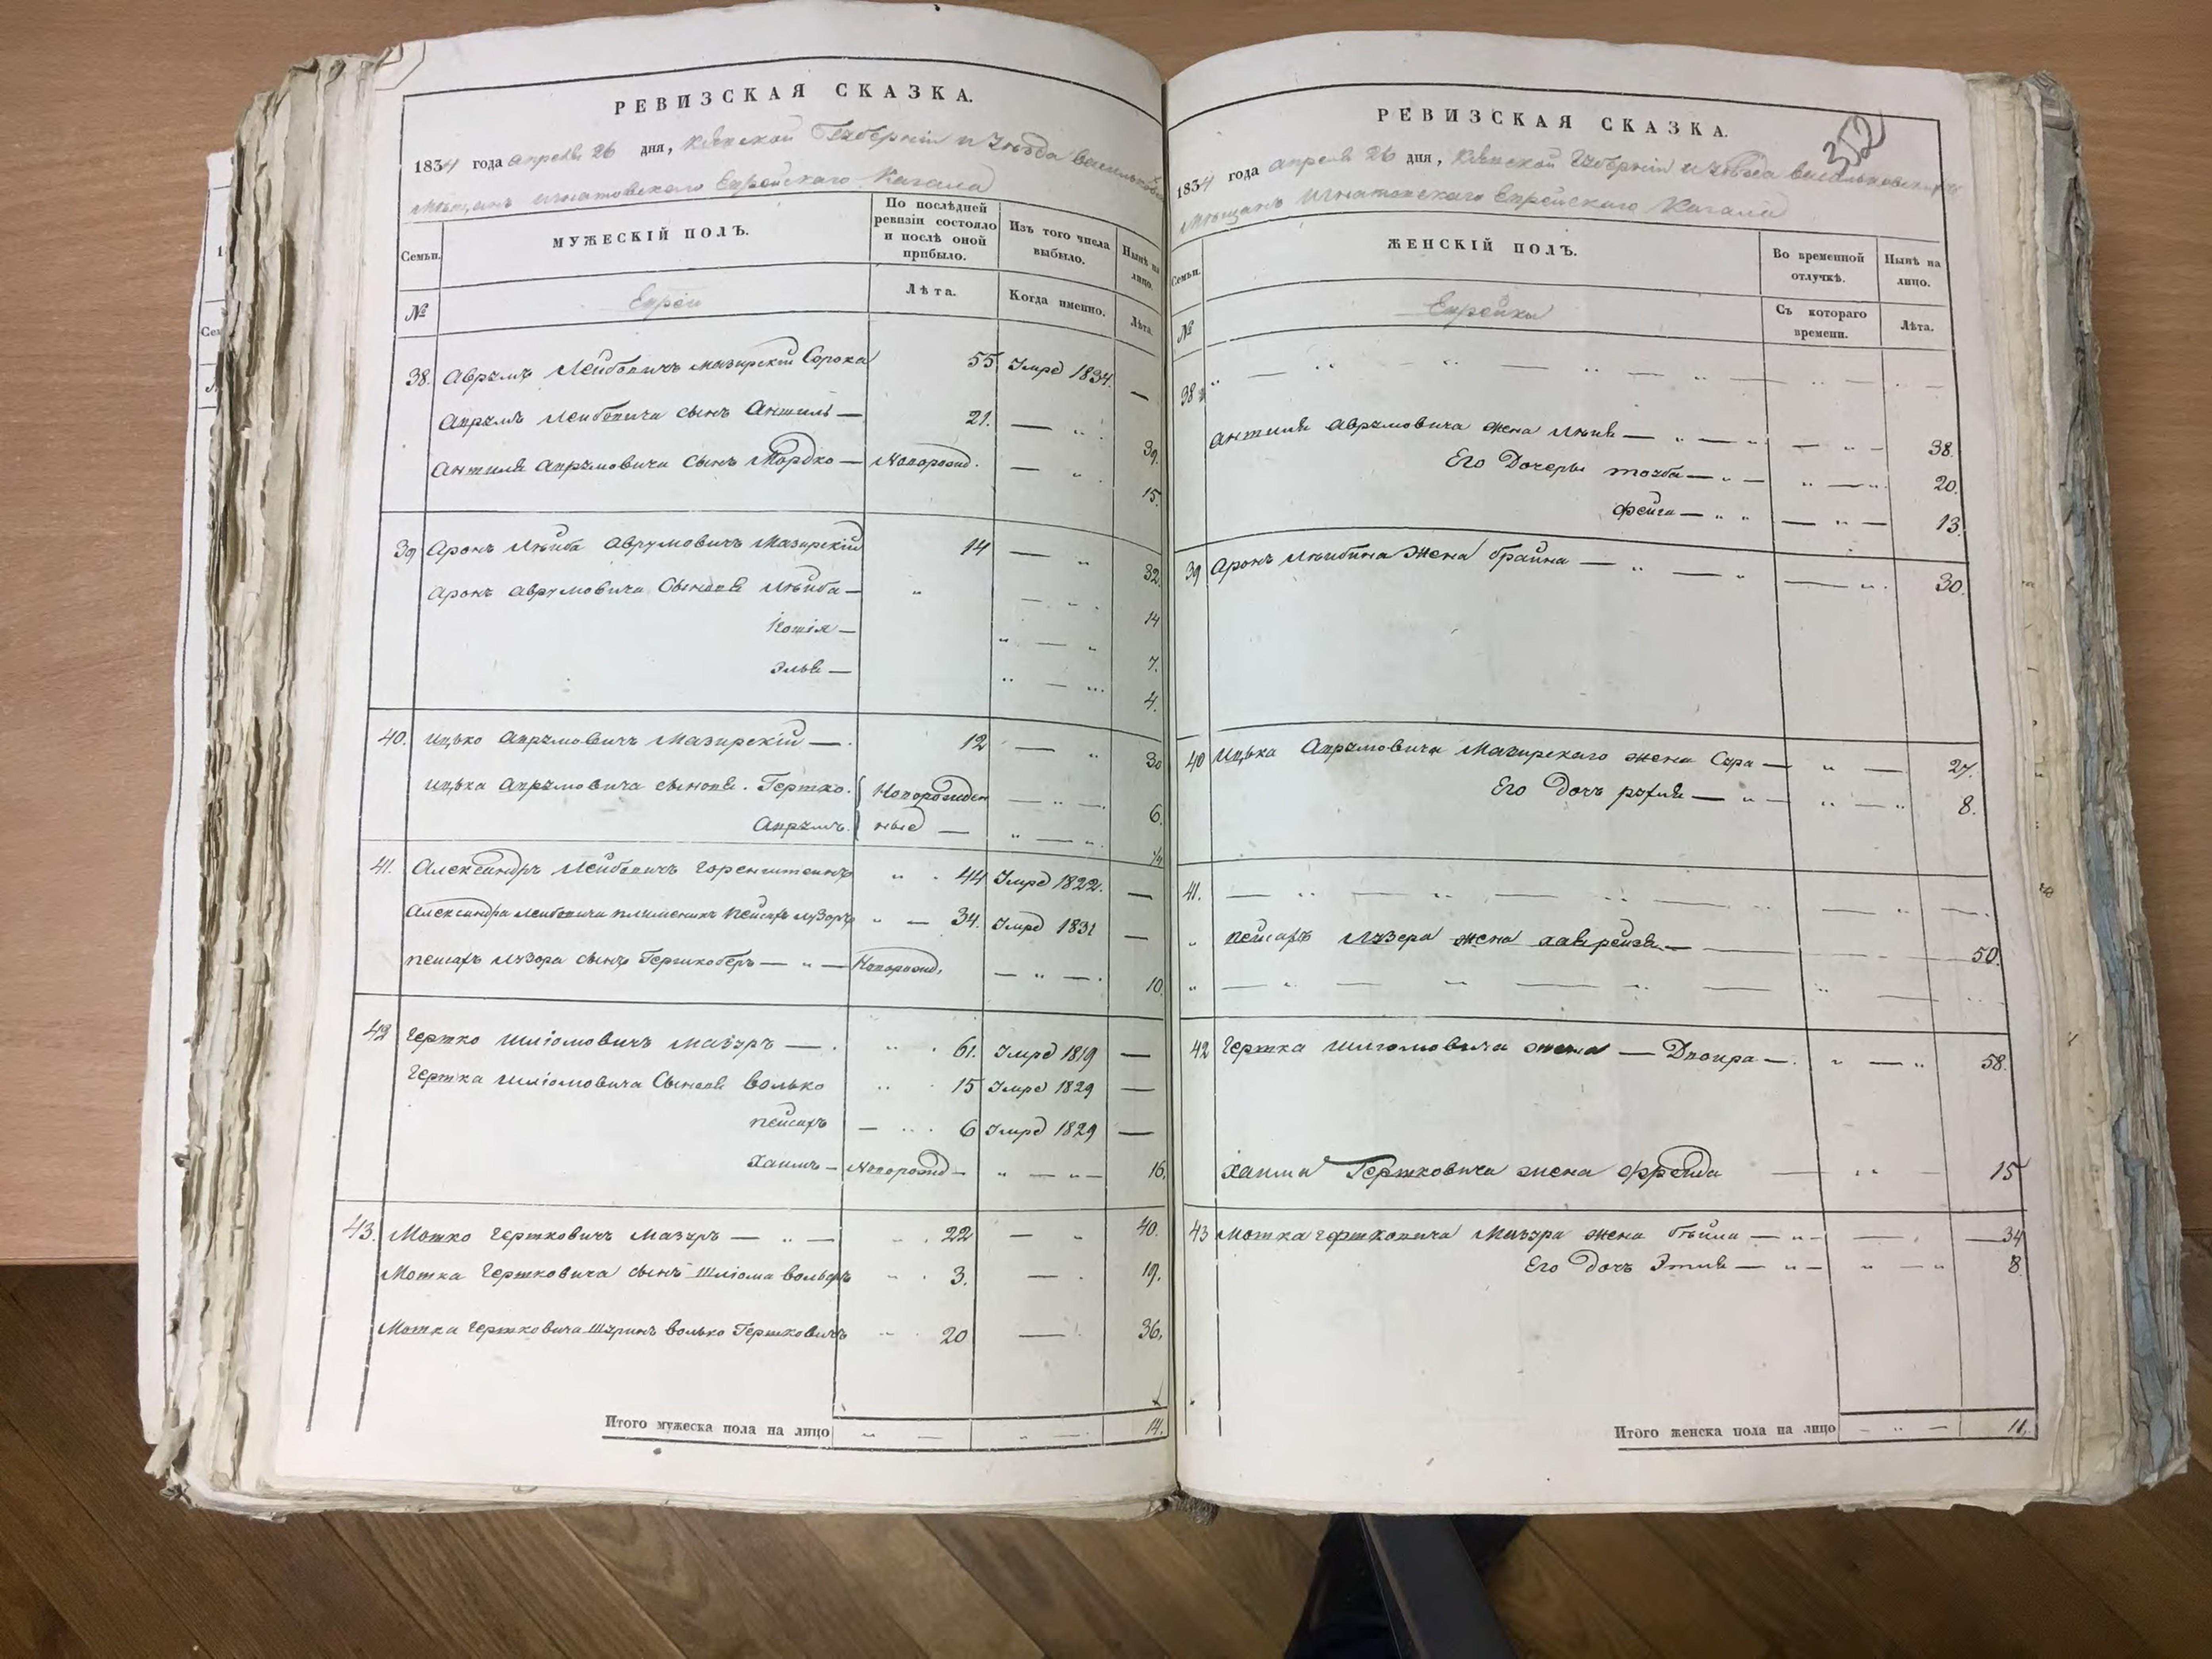 РЕВИЗСКАЯ СКАЗКА.
1834 года апреля 26 дня, Кіевской Губерніи и Уѣзда васильков
Мѣщанъ Игнатовскаго Еврейскаго Кагала
Семьи.
МУЖЕСКІЙ ПОЛЪ.
По послѣдней ревизіи состояло и послѣ оной прибыло.
Изъ того числа выбыло.
Нынѣ на лицо.
№
Евреи
Лѣта.
Когда именно.
Лѣта.
38. Аврумъ Лейбовичъ Мазирскій Сорока 55 Умре 1834. —
Аврумъ Лейбовича сынъ Антиль — 21. — „ 39.
Антиля Аврумовича Сынъ Мордко — Новорожд. — „ 15.
39 Аронъ Лѣйба Аврумовичъ Мазирскій 14 — „ 32.
Аронъ Аврумовича Сыновя Лѣйба — „ — „ 14
— „ — „ 7.
Эля — „ — „ 4.
40. Ицько Аврумовичъ Мазирскій — 12 — „ 30
Ицька Аврумовича сыновя. Гершко. Новорожден — „ — 6.
Аврумъ. ные — „ — „ 1/4
41. Александръ Лейбовичъ Горенштейнъ „ 44 Умре 1822. —
Александра Лейбовича племеникъ Пейсахъ Лузоръ „ — 34. Умре 1831 —
Пейсахъ Лузора сынъ Гершкоберъ — „ — Новорожд. — „ — 10.
42 Гершко Шліомовичъ Мазуръ — „ 61. Умре 1819 —
Гершка Шліомовича Сыновя Волько „ 15 Умре 1829 —
Пейсахъ — „ 6 Умре 1829 —
Хаимъ — Новорожд — „ — „ — 16.
43. Мотко Гершковичъ Мазуръ — „ — „ 22 — „ 40.
Мотка Гершковича сынъ Шліома вольфъ „ 3. — 19.
Мотка Гершковича Шуринъ Волько Гершковичъ „ 20 — 36.
Итого мужеска пола на лицо „ — „ — 14.
352
РЕВИЗСКАЯ СКАЗКА.
1834 года апреля 26 дня, Кіевской Губерніи и Уѣзда васильковских
Мѣщанъ Игнатовскаго Еврейскаго Кагала
Семьи.
ЖЕНСКІЙ ПОЛЪ.
Во временной отлучкѣ.
Нынѣ на лицо.
№
Еврейки
Съ котораго времени.
Лѣта.
38
Антиля Аврумовича жена — „ — „ — „ — 38.
Его Дочеры тауба — „ — „ — „ 20.
Фейга — „ „ — „ — 13.
39 Аронъ Лѣибина жена Брайна — „ — „ — „ 30.
40 Ицька Аврумовича Мазирскаго жена Сура — „ — 27.
Его Дочъ рухля — „ — „ — „ 8.
41.
„ Пейсахъ Лузера жена хавърейзя — 50.
42 Гершка Шліомовича жена — Двоира — „ — „ 58.
Хаима Гершковича жена Ффрейда — „ 15
43 Мотка Гершковича Мазура жена Бѣйла — „ — — 34
Его Дочъ Этля — „ — „ — „ 8.
Итого женска пола на лицо — „ — 11.